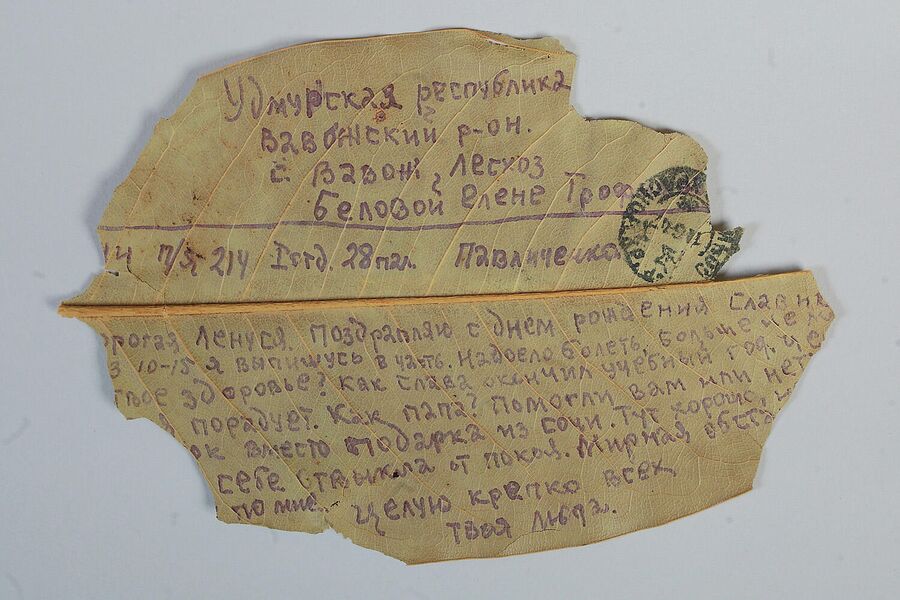 Удмурская республика
Вавожский р-он.
с. Вавож, Лесхоз
Беловой Елене Троф
п/я 214 Iотд. 28 пал. Павличенко
орогая Ленуся. Поздравляю с днем рождения
10-15 я выпишусь в часть. Надоело болеть. больше
твое здоровье? Как Слава окончил учебный год.
порадует. Как папа? Помогли вам или нет
ок вместо подарка из Сочи. Тут хорошо,
себе отвыкла от покоя. Мирная
по мне. Целую крепко всех
твоя Люда.